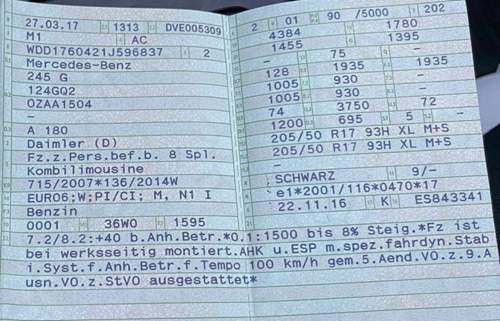 27.03.17 1313 DVE005309
M1 AC
WDD1760421J596837 2
Mercedes-Benz
245 G
124GQ2
OZAA1504
–
A 180
Daimler (D)
Fz.z.Pers.bef.b. 8 Spl.
Kombilimousine
715/2007*136/2014W
EURO6;W;PI/CI; M, N1 I
Benzin
0001 36W0 1595
2 01 90 /5000 202
4384 1780
1455 1395
– 75 –
128 1935 1935
1005 930 –
1005 930 –
74 3750 72
1200 695 5 –
205/50 R17 93H XL M+S
205/50 R17 93H XL M+S
–
SCHWARZ 9/–
e1*2001/116*0470*17
22.11.16 K ES843341
7.2/8.2:+40 b.Anh.Betr.*O.1:1500 bis 8% Steig.*Fz ist
bei werksseitig montiert.AHK u.ESP m.spez.fahrdyn.Stab
i.Syst.f.Anh.Betr.f.Tempo 100 km/h gem.5.Aend.VO.z.9.A
usn.VO.z.StVO ausgestattet*